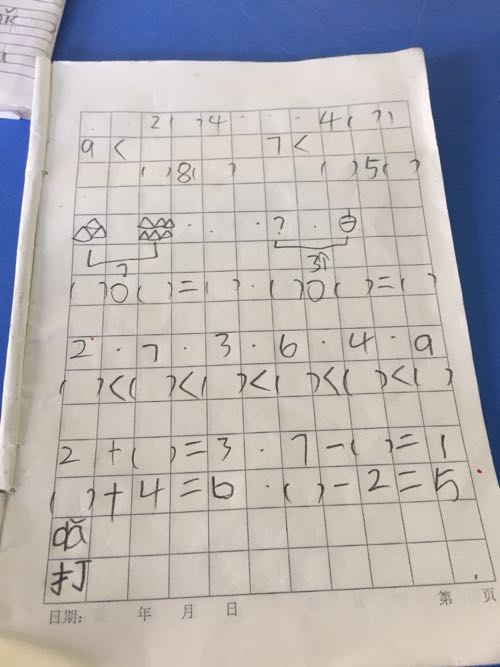 2( )4 · · · 4( )1
9< 7<
( )8( ) ( )5( )
· · · ? ·
? 3个
( )○( )=( ) · ( )○( )=( )
2 · 7 · 3 · 6 · 4 · 9
( )<( )<( )<( )<( )<( )
2+( )=3 · 7-( )=1
( )+4=6 · ( )-2=5
dǎ
打
日期: 年 月 日 第 页